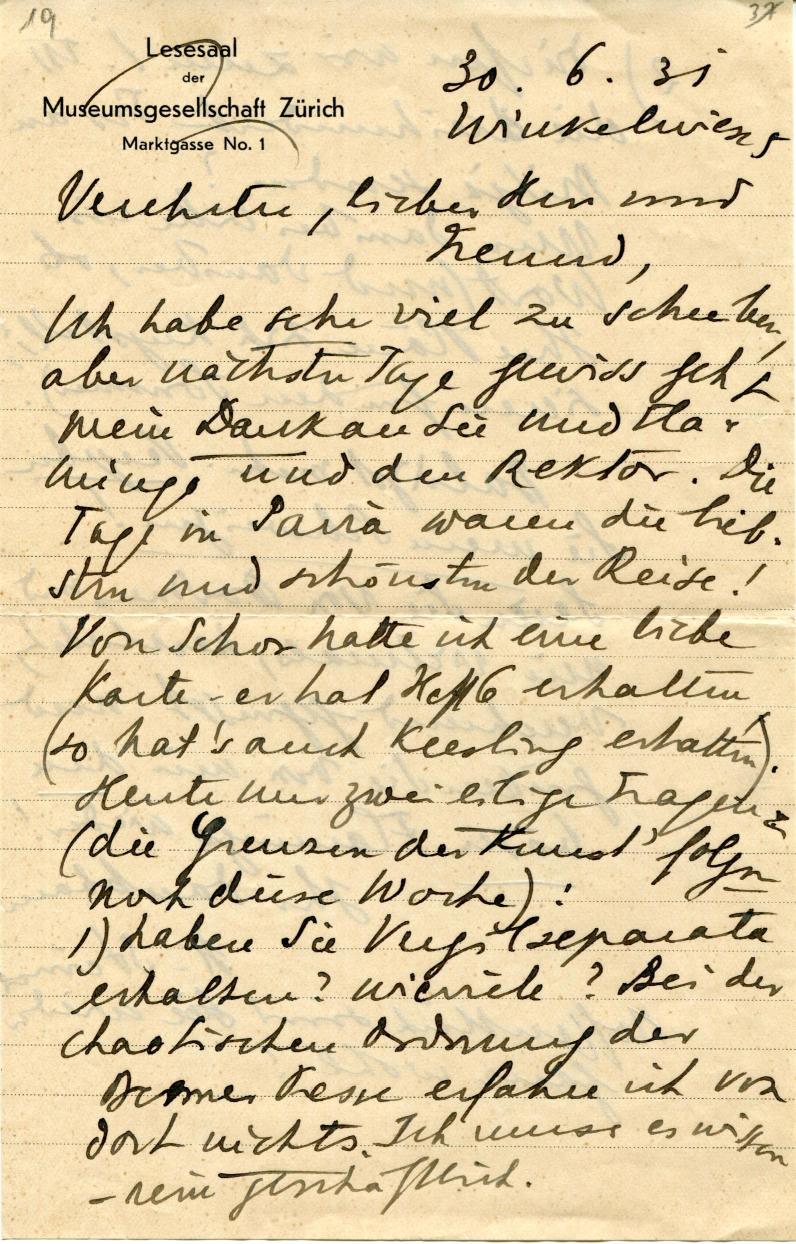 19
37
Lesesaal
der
Museumsgesellschaft Zürich
Marktgasse No. 1
30. 6. 31
Winkelwiese 5
Verehrter, lieber Herr und
Freund,
Ich habe sehr viel zu schreiben,
aber nächster Tage gewiss geht
mein Dank an Sie und
und den Rektor. Die
Tage in waren die lieb-
sten und schönsten der Reise!
Von Schor hatte ich eine liebe
Karte - er hat Heft 6 erhalten
(so hat's auch Keesling erhalten).
Heute nur zwei eilige Fragen
(die 'Grenzen der Kunst' folgen
noch diese Woche):
1) haben Sie Vergilseparata
erhalten? wieviele? Bei der
chaotischen Ordnung der
erfahre ich von
dort nichts. Ich muss es wissen
- rein geschäftlich.